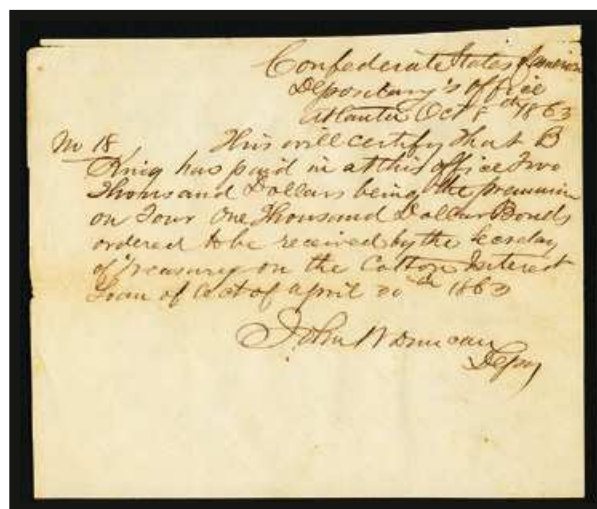 Confederate States of America
Depositary's office
Atlanta Oct 8th 1863
No 18 This will certify that B
King has paid in at this office Two
Thousand Dollars being the premium
on Four One Thousand Dollar Bonds
ordered to be received by the Secretay
of Treasury on the Cotton Interest
Loan of act of April 30th 1863
John W Duncan
Depy